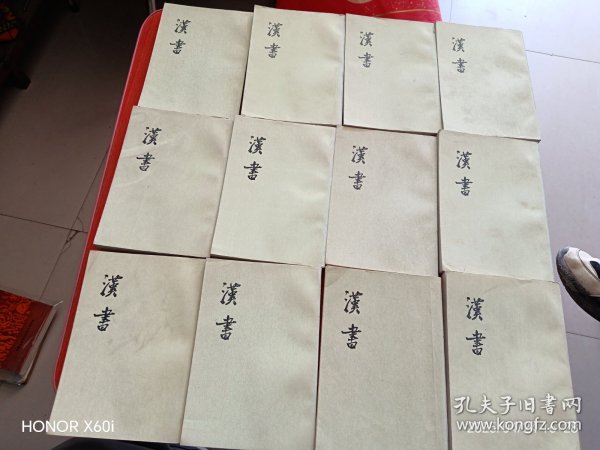 漢書
漢書
漢書
漢書
漢書
漢書
漢書
漢書
漢書
漢書
漢書
漢書
HONOR X60i
孔夫子旧书网
www.kongfz.com